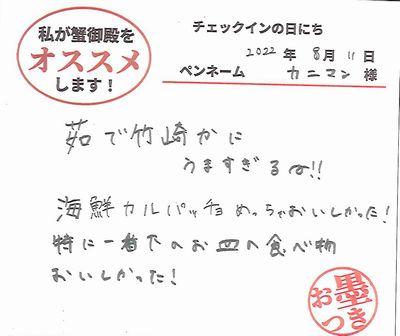 私が蟹御殿を
オススメ
します！
チェックインの日にち
2022 年 8 月 11 日
ペンネーム カニマン 様
茹で竹崎かに
うますぎるぅ!!
海鮮カルパッチョめっちゃおいしかった！
特に一番下のお皿の食べ物
おいしかった！
お墨つき